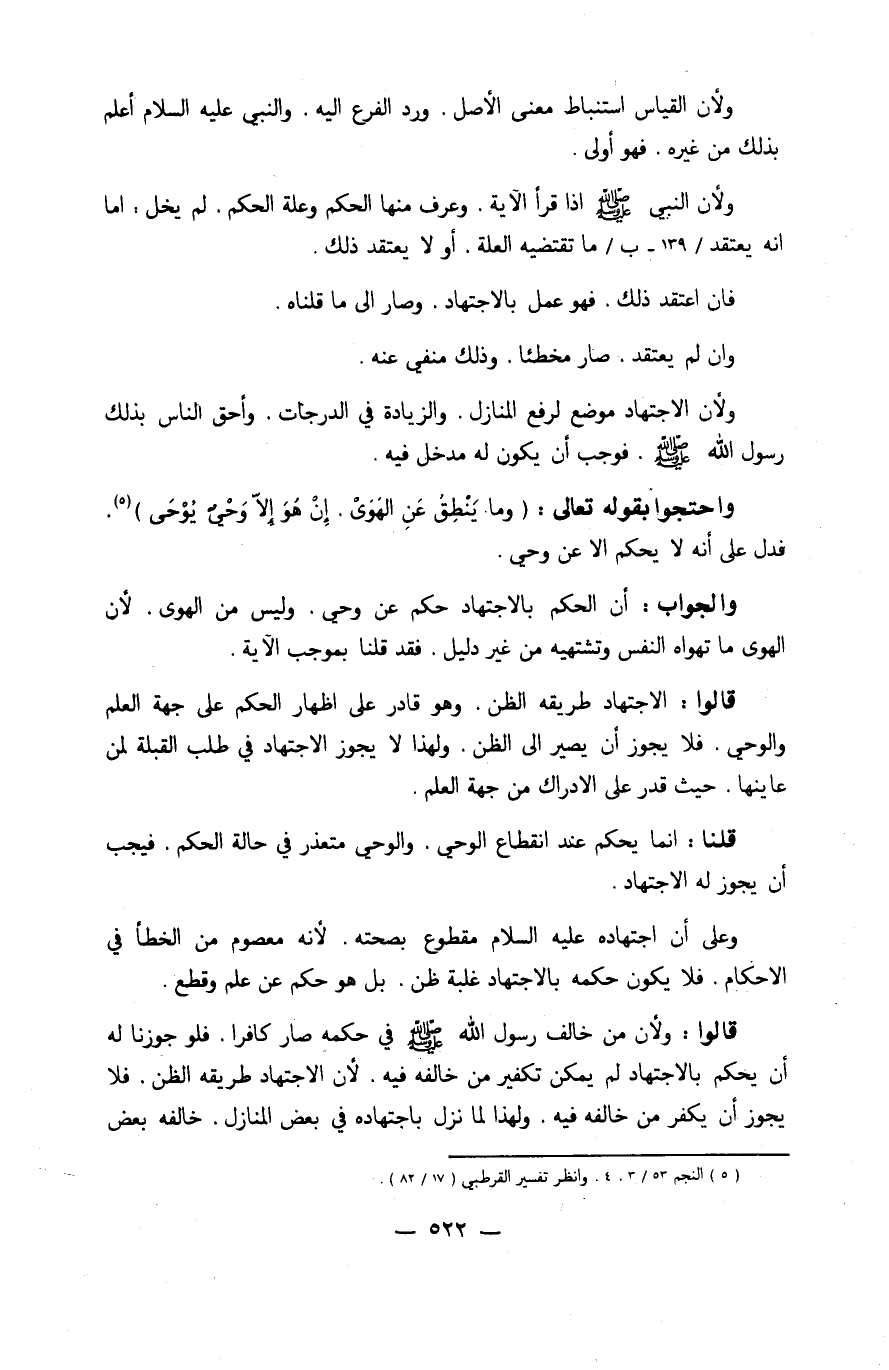 ولأن القياس استنباط معنى الأصل . ورد الفرع اليه . والنبي عليه السلام أعلم
بذلك من غيره . فهو أولى .
ولأن النبي ﷺ اذا قرأ الآية . وعرف منها الحكم وعلة الحكم . لم يخل : اما
انه يعتقد / ١٣٩ ـ ب / ما تقتضيه العلة . أو لا يعتقد ذلك .
فان اعتقد ذلك . فهو عمل بالاجتهاد . وصار الى ما قلناه .
وان لم يعتقد . صار مخطئا . وذلك منفي عنه .
ولأن الاجتهاد موضع لرفع المنازل . والزيادة في الدرجات . وأحق الناس بذلك
رسول الله ﷺ . فوجب أن يكون له مدخل فيه .
واحتجوا بقوله تعالى : ( وما يَنْطِقُ عَنِ الهَوَىْ . إِنْ هُوَ إِلاّ وَحْيٌ يُوْحَى )(٥).
فدل على أنه لا يحكم الا عن وحي .
والجواب : أن الحكم بالاجتهاد حكم عن وحي . وليس من الهوى . لأن
الهوى ما تهواه النفس وتشتهيه من غير دليل . فقد قلنا بموجب الآية .
قالوا : الاجتهاد طريقه الظن . وهو قادر على اظهار الحكم على جهة العلم
والوحي . فلا يجوز أن يصير الى الظن . ولهذا لا يجوز الاجتهاد في طلب القبلة لمن
عاينها . حيث قدر على الادراك من جهة العلم .
قلنا : انما يحكم عند انقطاع الوحي . والوحي متعذر في حالة الحكم . فيجب
أن يجوز له الاجتهاد .
وعلى أن اجتهاده عليه السلام مقطوع بصحته . لأنه معصوم من الخطأ في
الاحكام . فلا يكون حكمه بالاجتهاد غلبة ظن . بل هو حكم عن علم وقطع .
قالوا : ولأن من خالف رسول الله ﷺ في حكمه صار كافرا . فلو جوزنا له
أن يحكم بالاجتهاد لم يمكن تكفير من خالفه فيه . لأن الاجتهاد طريقه الظن . فلا
يجوز أن يكفر من خالفه فيه . ولهذا لما نزل باجتهاده في بعض المنازل . خالفه بعض
( ٥ ) النجم ٥٣ / ٣ . ٤ . وانظر تفسير القرطبي ( ١٧ / ٨٢ ) .
— ٥٢٢ —